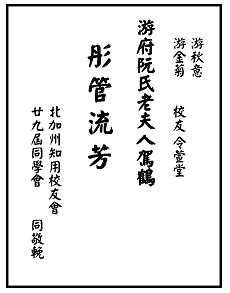 游秋意
游金菊
校友令萱堂
游府阮氏老夫人駕鶴
彤管流芳
北加州知用校友會
廿九屆同學會
同敬輓